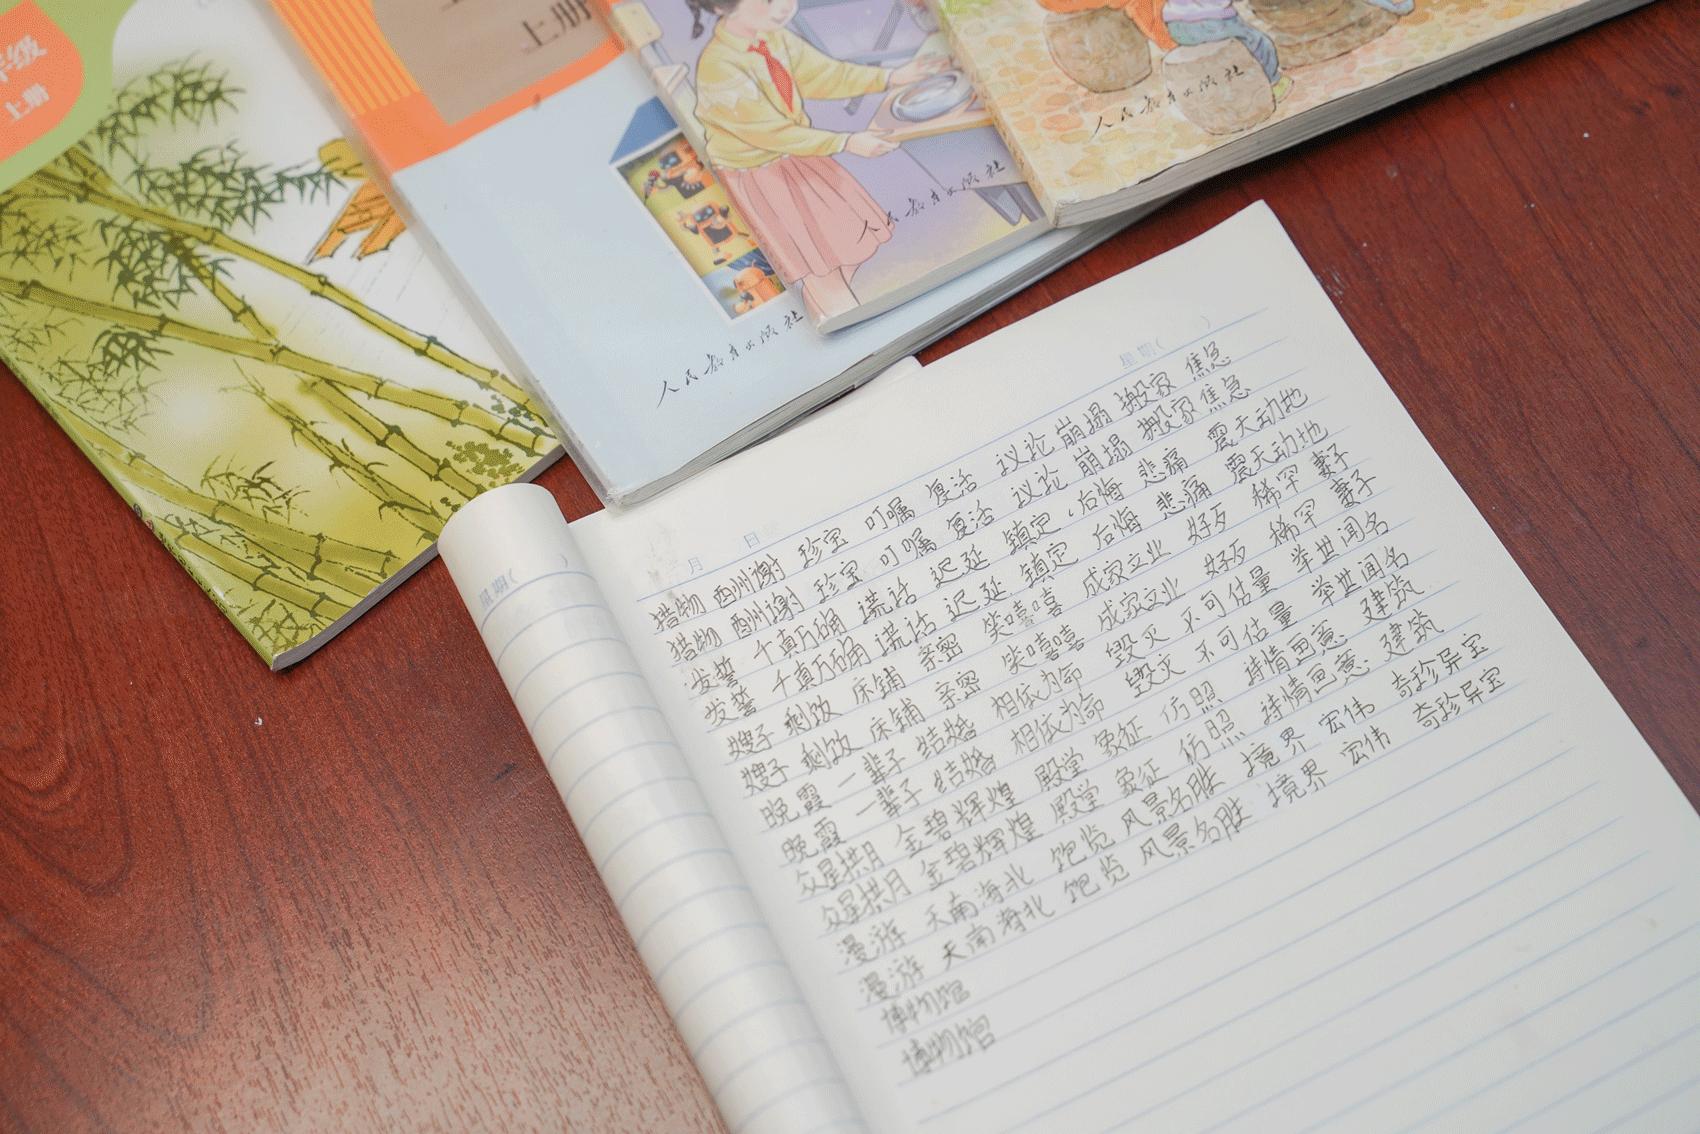 年级
上册
上册
人民教育出版社
人民教育出版社
人民教育出版社
星期( )
月 日
星期( )
猎物 酬谢 珍宝 叮嘱 复活 议论 崩塌 搬家 焦急
猎物 酬谢 珍宝 叮嘱 复活 议论 崩塌 搬家 焦急
发誓 千真万确 谎话 迟延 镇定 后悔 悲痛 震天动地
发誓 千真万确 谎话 迟延 镇定 后悔 悲痛 震天动地
嫂子 剩饭 床铺 亲密 笑嘻嘻 成家立业 好歹 稀罕 妻子
嫂子 剩饭 床铺 亲密 笑嘻嘻 成家立业 好歹 稀罕 妻子
晚霞 一辈子 结婚 相依为命 毁灭 不可估量 举世闻名
晚霞 一辈子 结婚 相依为命 毁灭 不可估量 举世闻名
众星拱月 金碧辉煌 殿堂 象征 仿照 诗情画意 建筑
众星拱月 金碧辉煌 殿堂 象征 仿照 诗情画意 建筑
漫游 天南海北 饱览 风景名胜 境界 宏伟 奇珍异宝
漫游 天南海北 饱览 风景名胜 境界 宏伟 奇珍异宝
博物馆
博物馆